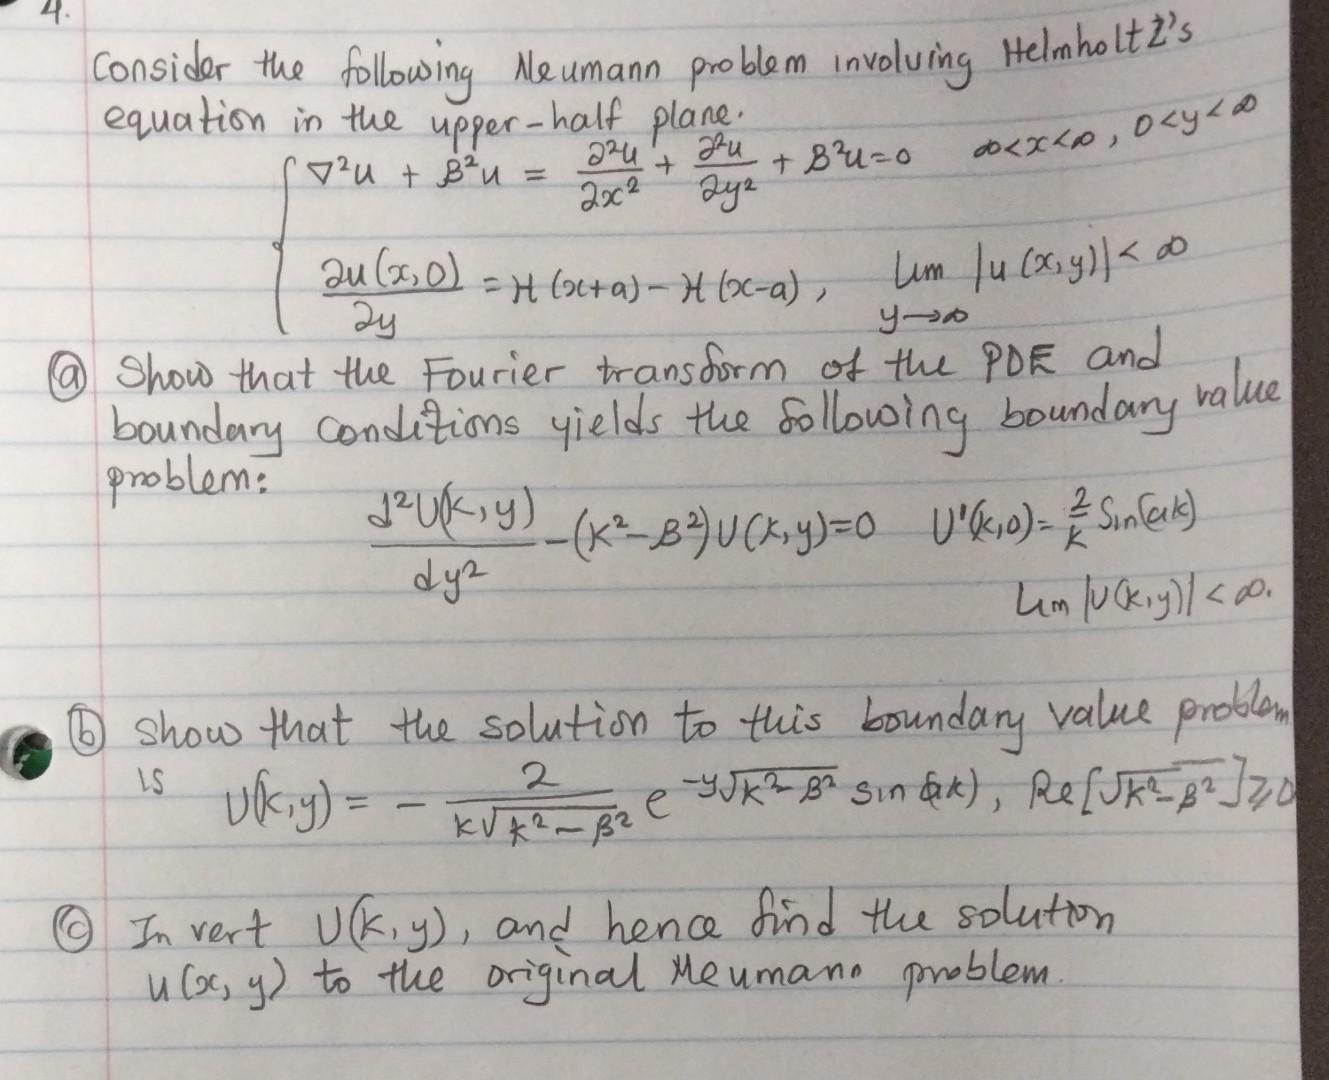 4.
Consider the following Neumann problem involving Helmholtz's
equation in the upper-half plane.
∇²u + β²u = ∂²u/∂x² + ∂²u/∂y² + β²u=0 ∞<x<∞, 0<y<∞
∂u(x,0)/∂y = H(x+a) - H(x-a), Lim y→∞ |u(x,y)| < ∞
(a) Show that the Fourier transform of the PDE and
boundary conditions yields the following boundary value
problem:
d²U(k,y)/dy² - (k²-β²)U(k,y)=0 U'(k,0)= 2/k Sin(ak)
Lim |U(k,y)| < ∞.
(b) Show that the solution to this boundary value problem
is U(k,y) = - 2/(k√k²-β²) e^(-y√k²-β²) sin(ak), Re[√k²-β²]≥0
(c) Invert U(k,y), and hence find the solution
u(x,y) to the original Neumann problem.